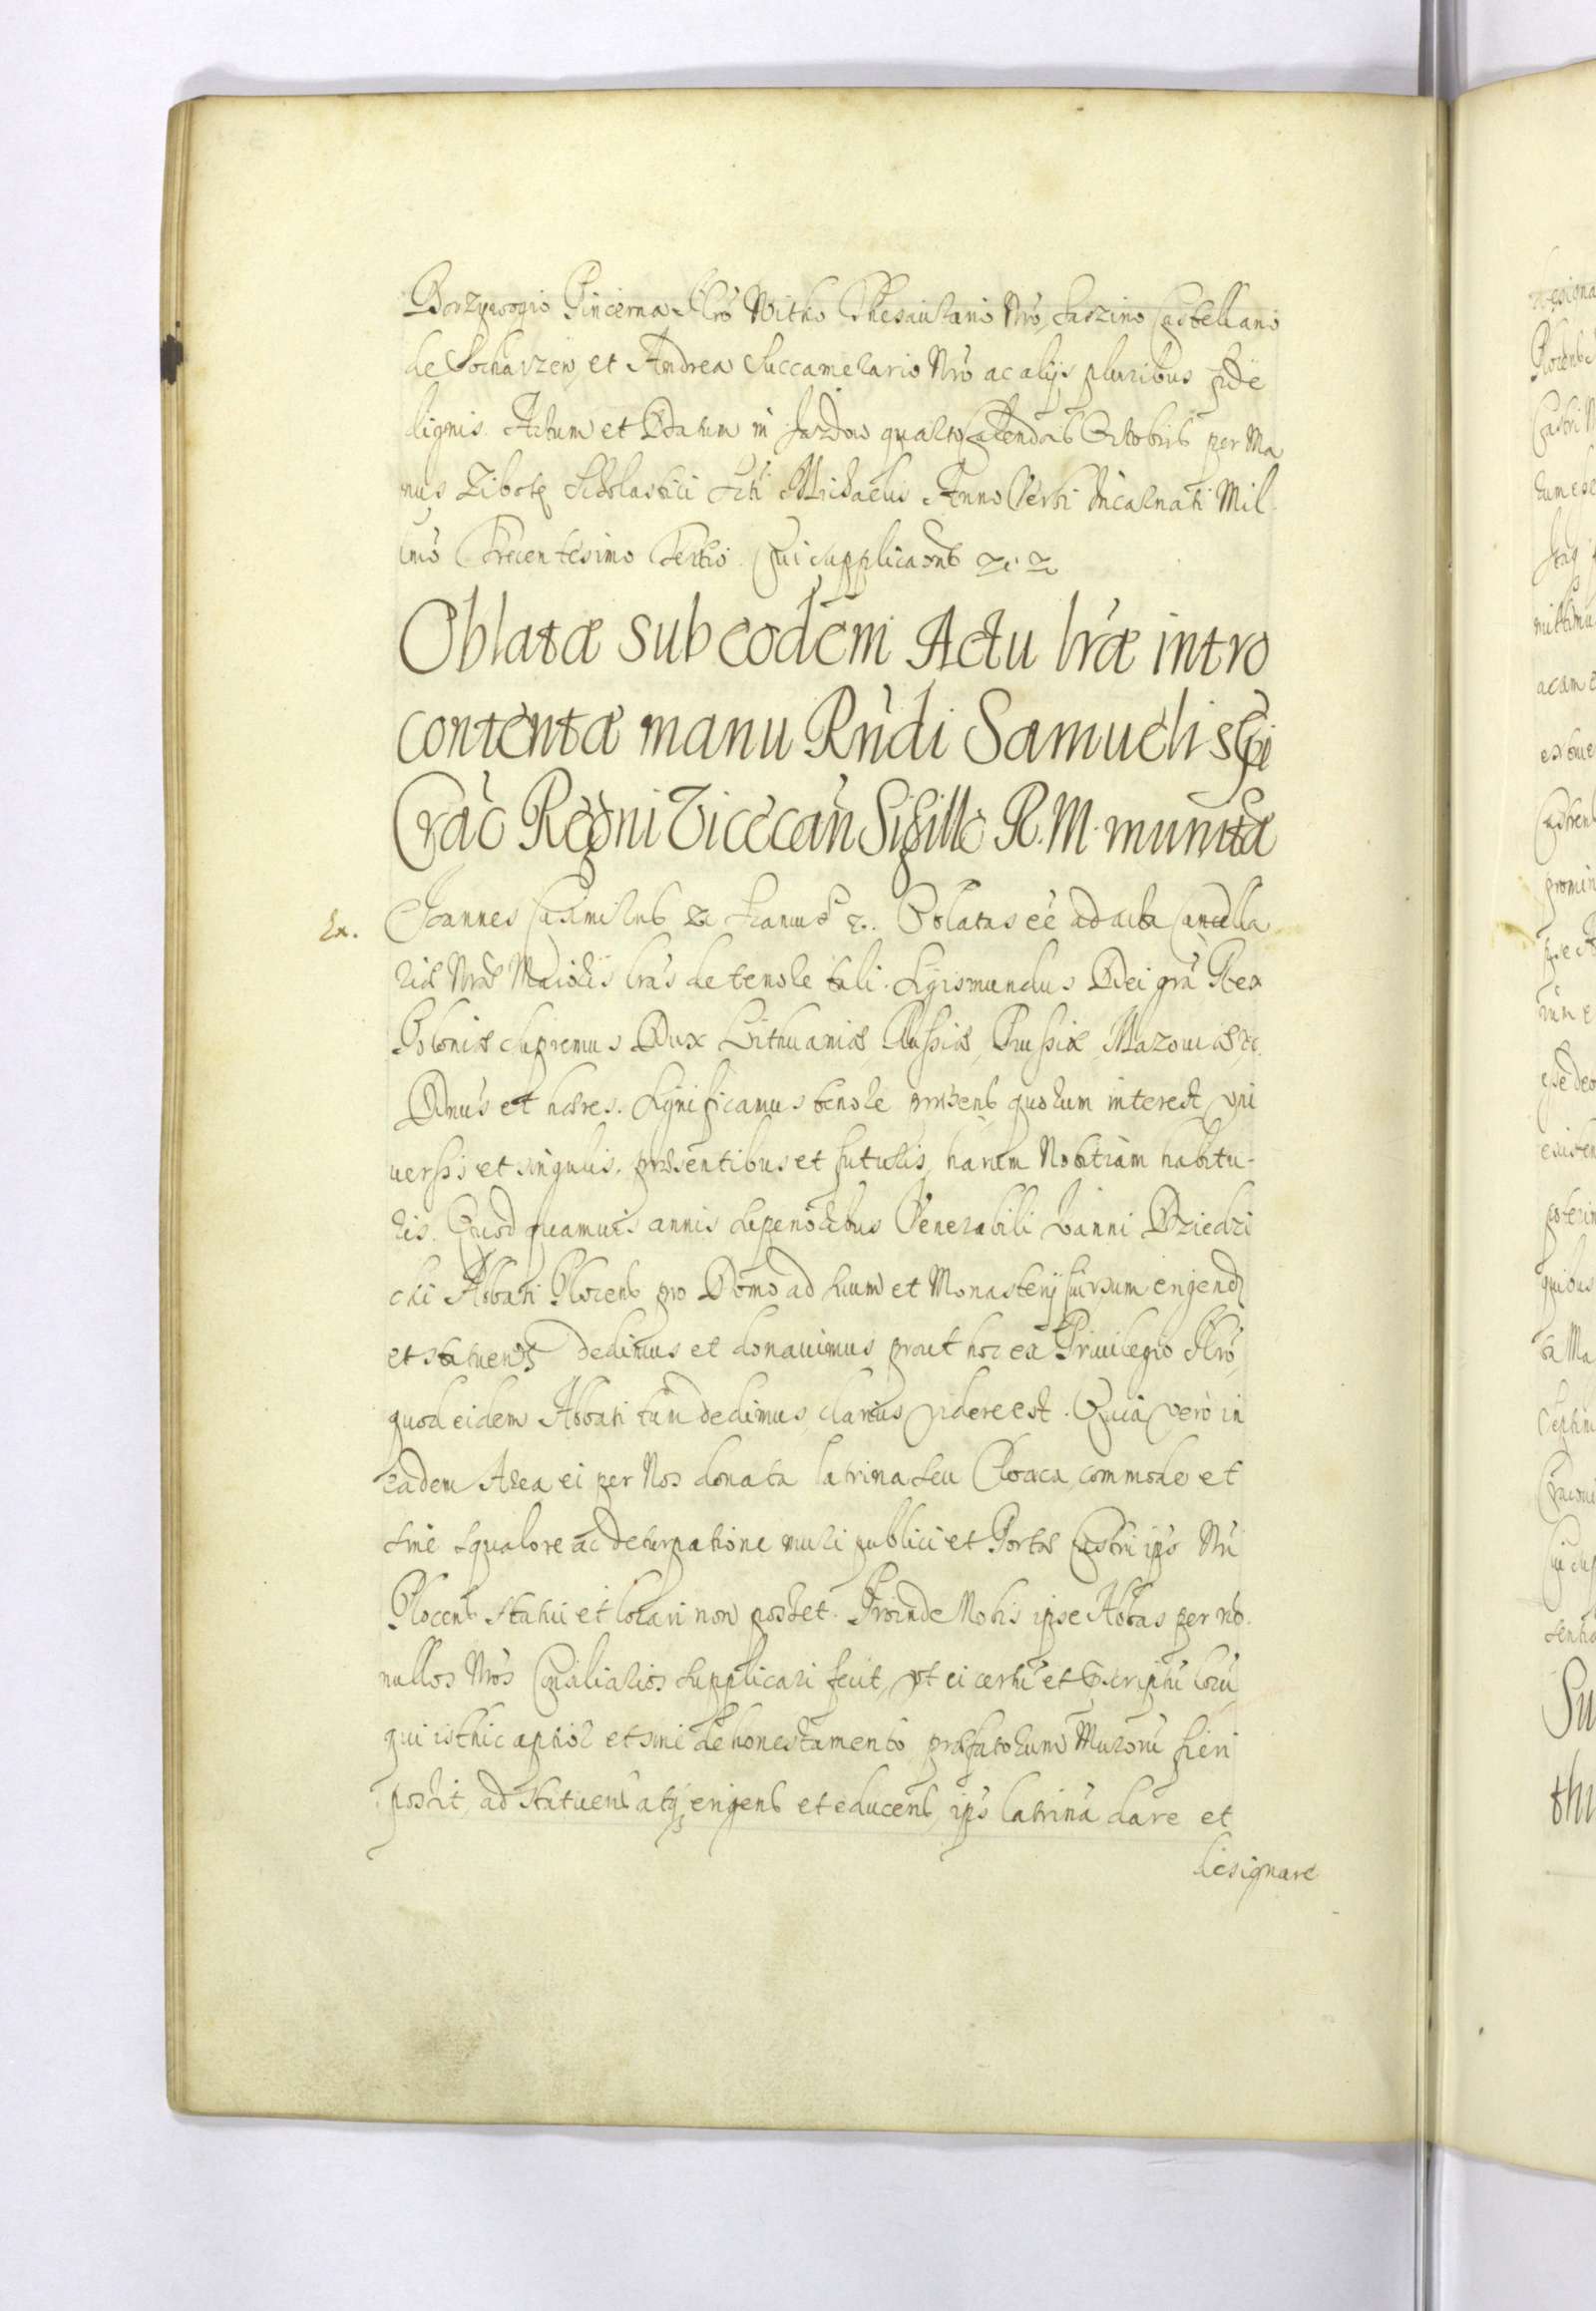 Borzywogio Pincerna Nro Witko Thesaurario Nro, Jaszino Castellano
de Sochaczew, et Andrea Succamerario Nro ac alijs pluribus fide
dignis. Actum et Datum in Jazdow quarto Calendas Octobris per Ma
nus Scholastici Scti Michaelis Anno Verbi Incarnati Mil
lmo Trecentesimo Tertio. Cui supplicaoni &c &c
Oblatæ sub eodem Actu lræ intro
contentæ manu Rndi Samueli scpi
Crac Regni Vicecan Sigillo R. M. munitæ
Ex. Joannes Casimirus &c Seanus &c. Oblatas eē ad acta Cancella
riæ Nræ Maioris lras de tenore tali. Sigismundus Dei gra Rex
Poloniæ Supremus Dux Lithuaniæ, Russiæ, Prussiæ, Mazouiæ &c.
Dnus et hæres. Significamus tenore præsens quorum interest vni
uersis et singulis, præsentibus et futuris, harum Notitiam habitu-
ris. Quod quamuis annis superioribus Venerabili Joanni Dziedzi
cki Abbati Plocens pro Domo ad suum et Monasterij sui vsum erigend
et statuend dedimus et donauimus, prout hoc ex Priuilegio Nro,
quod eidem Abbati tūn dedimus, clarius videre est. Quia vero in
eadem Area ei per Nos donata latrina seu Cloaca, commode et
sine squalore ac deturpatione muri publici et Portæ Castri ips Nri
Plocens statui et locari non posset. Proinde Nobis ipse Abbas per no
nullos Nros Consiliarios supplicari fecit, vt ei certū et locū
qui isthic aptior et sine dehonestamento præfatorum Murorū fieri
possit, ad statuend atq erigend et educend ips latrinā dare et
designare